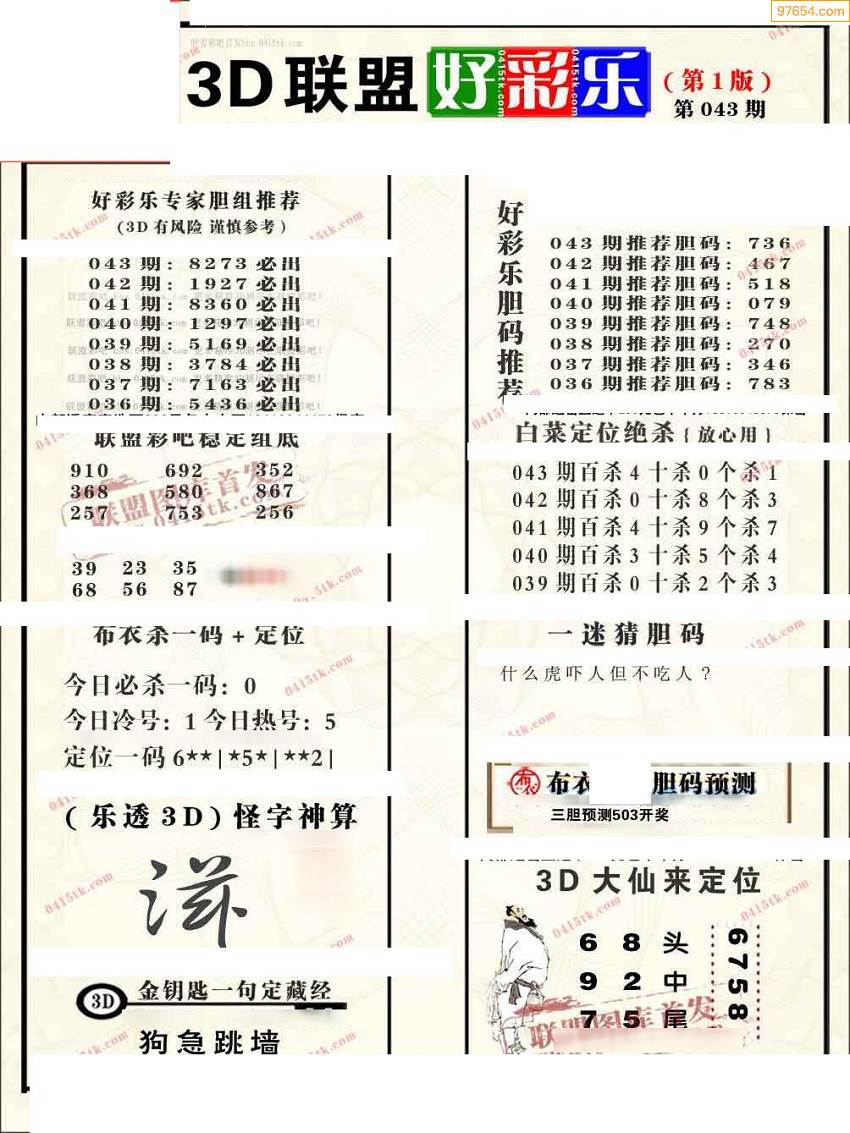 97654.com
3D联盟好彩乐
(第1版)
第043期
好彩乐专家胆组推荐
(3D有风险 谨慎参考)
043期:8273必出
042期:1927必出
041期:8360必出
040期:1297必出
039期:5169必出
038期:3784必出
037期:7163必出
036期:5436必出
联盟彩吧稳定组底
910 692 352
368 580 867
257 753 256
39 23 35
68 56 87
布衣杀一码+定位
今日必杀一码:0
今日冷号:1今日热号:5
定位一码6**|*5*|**2|
(乐透3D)怪字神算
3D
金钥匙一句定藏经
狗急跳墙
好彩乐胆码推荐
043期推荐胆码:736
042期推荐胆码:467
041期推荐胆码:518
040期推荐胆码:079
039期推荐胆码:748
038期推荐胆码:270
037期推荐胆码:346
036期推荐胆码:783
白菜定位绝杀{放心用}
043期百杀4十杀0个杀1
042期百杀0十杀8个杀3
041期百杀4十杀9个杀7
040期百杀3十杀5个杀4
039期百杀0十杀2个杀3
一迷猜胆码
什么虎吓人但不吃人?
布衣 胆码预测
三胆预测503开奖
3D大仙来定位
6 8 头
9 2 中
7 5 尾
6758
联盟图库首发
0415tk.com